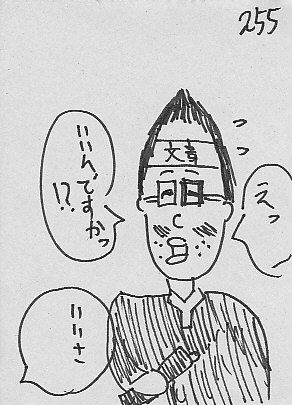 255
文青
えっ
いいんですかっ
!?
いいさ